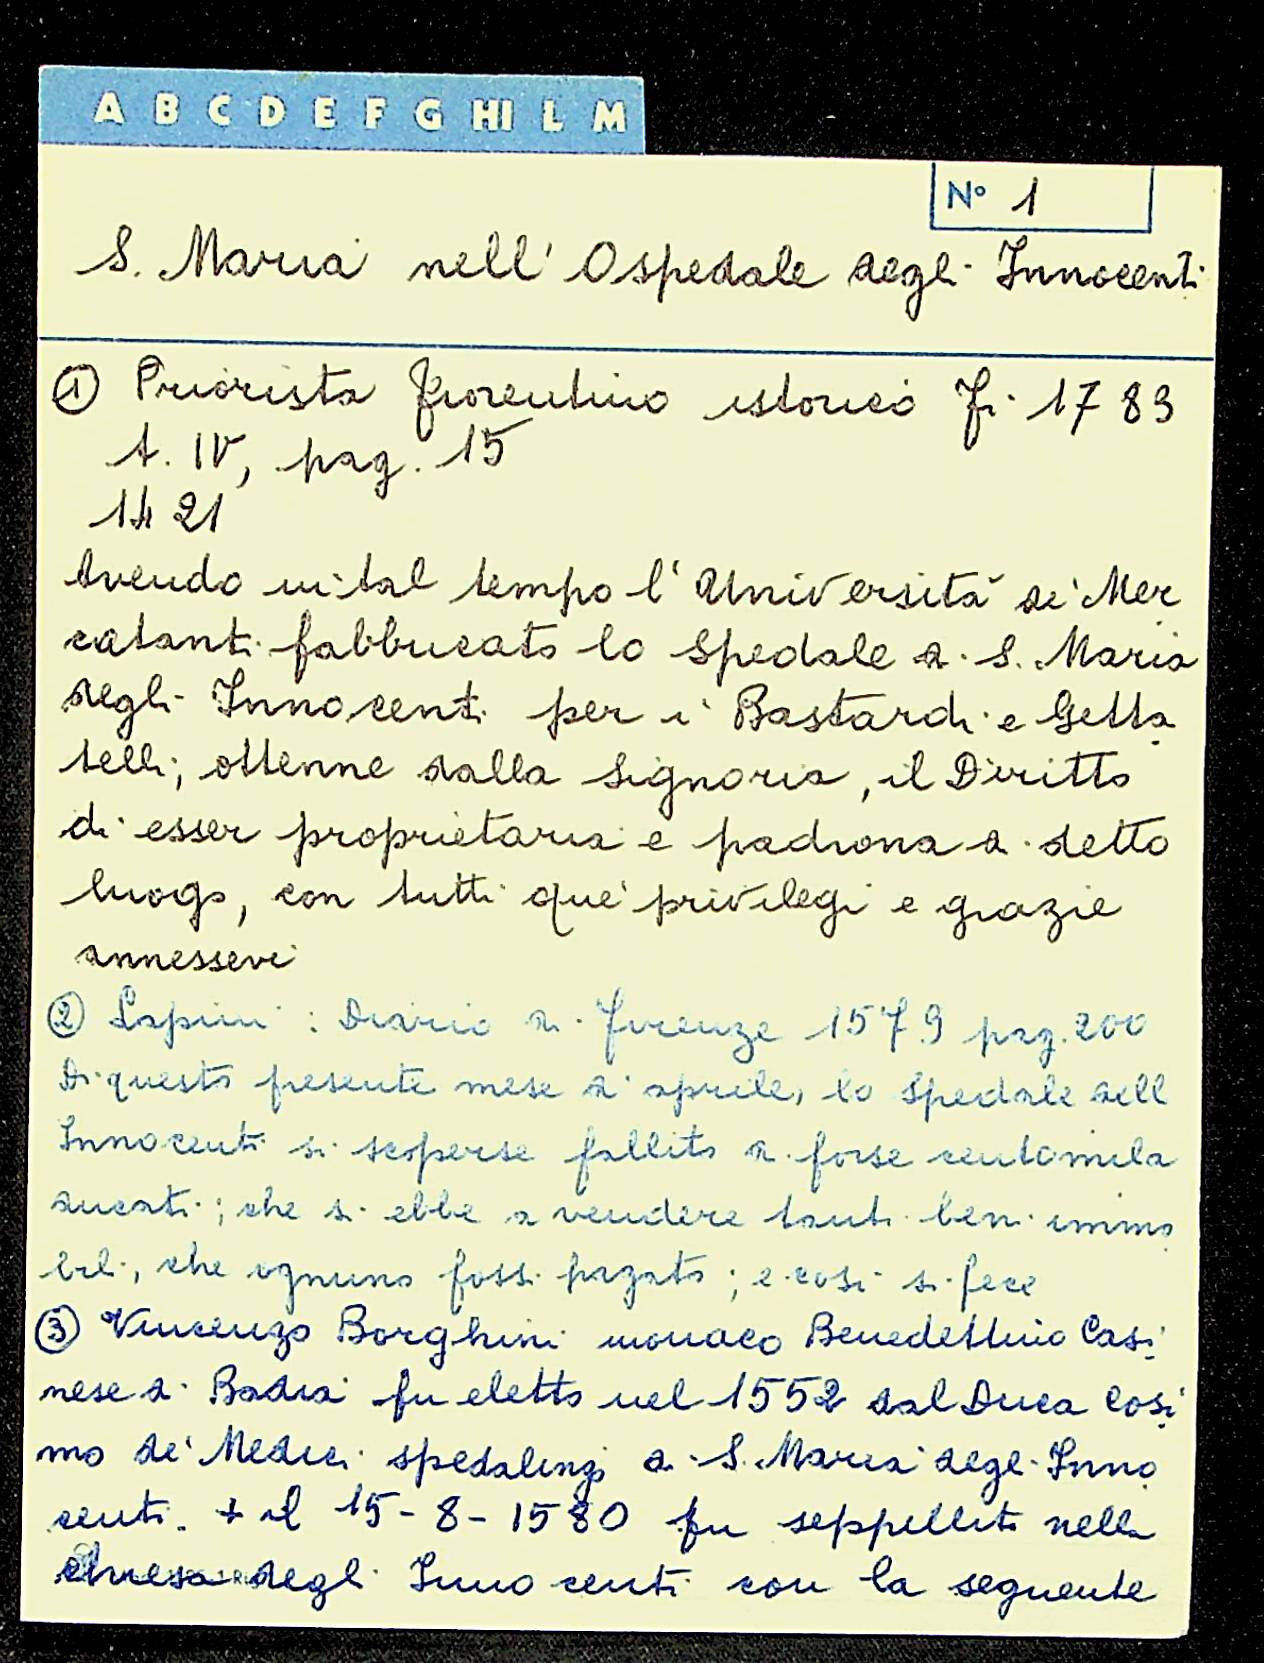 A B C D E F G HI L M
N° 1
S. Maria nell' Ospedale degli Innocenti
① Priorista fiorentino istorico Fi. 1783
t. IV, pag. 15
1421
Avendo in tal tempo l'Università de' Mer
catanti fabbricato lo Spedale di S. Maria
degli Innocenti per i Bastardi e Getta
telli; ottenne dalla Signoria, il Diritto
di esser proprietaria e padrona di detto
luogo, con tutti que' privilegi e grazie
annessevi
② Lapini: Diario di Firenze 1579 pag. 200
Di questo presente mese di aprile, lo Spedale dell
Innocenti si scoperse fallito di forse centomila
ducati; che si ebbe a vendere tanti beni immo
bili, che ognuno fossi pagato; e così si fece
③ Vincenzo Borghini monaco Benedettino Casi
nese di Badia fu eletto nel 1552 dal Duca Cosi
mo de' Medici spedalingo di S. Maria degli Inno
centi. + il 15-8-1580 fu seppellito nella
chiesa degli Innocenti con la seguente